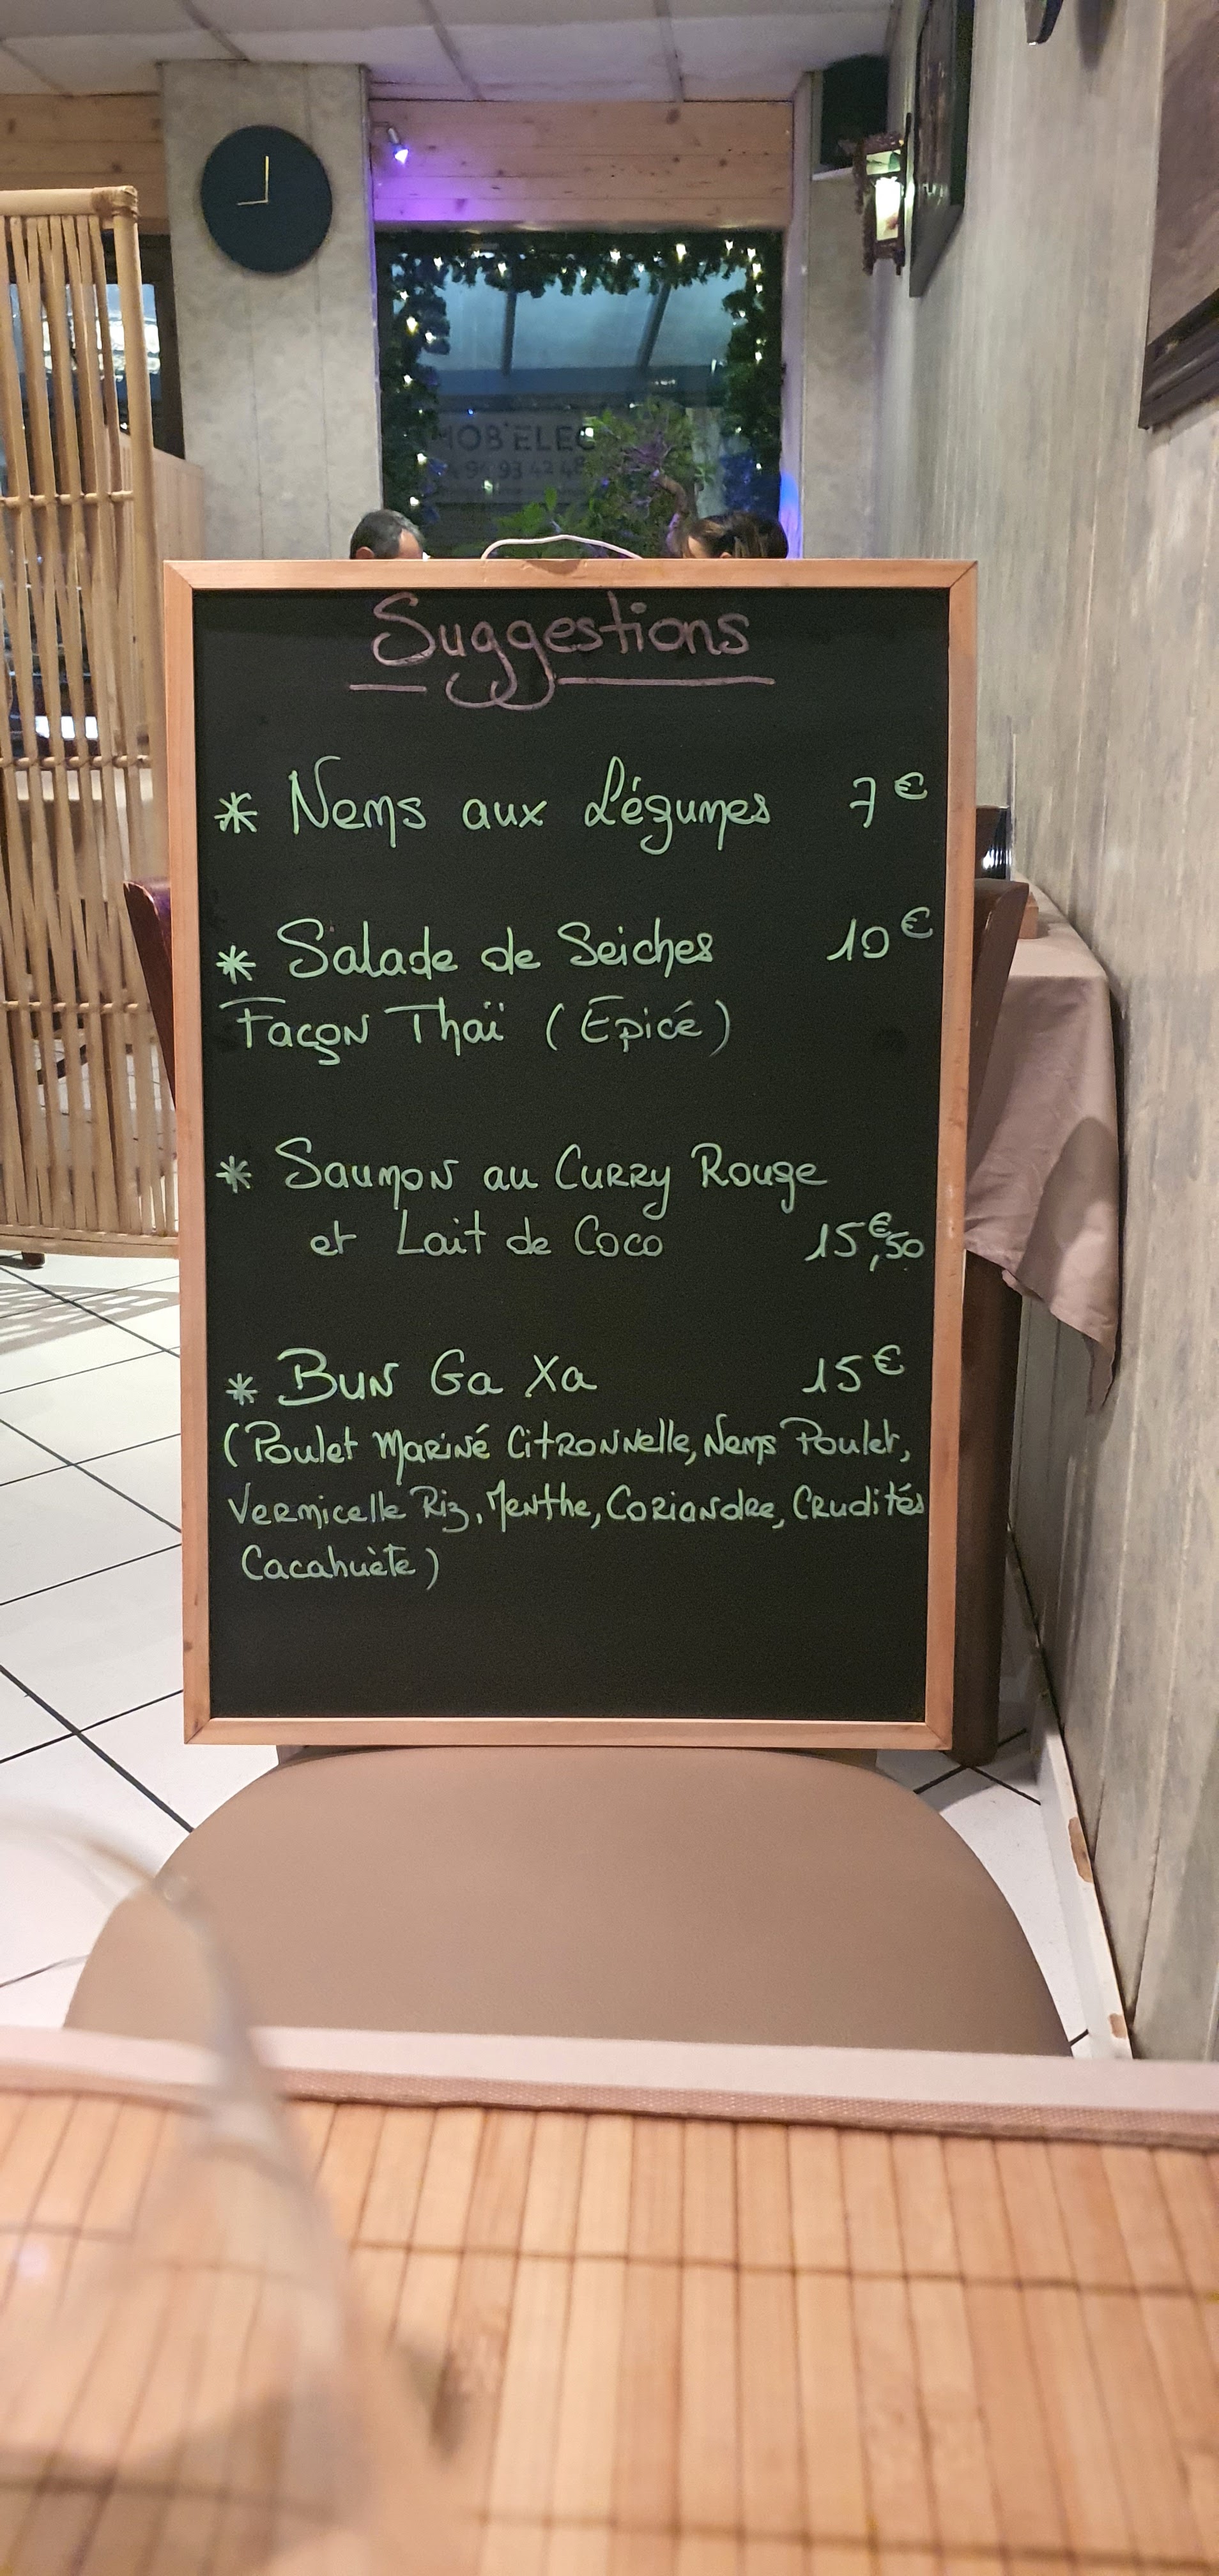 HOB'ELEC
4 94 93 42 48
Suggestions
* Nems aux Légumes 7€
* Salade de Seiches 10€
Façon Thaï (Epicé)
* Saumon au Curry Rouge
et Lait de Coco 15€,50
* Bun Ga Xa 15€
(Poulet Mariné Citronnelle, Nems Poulet,
Vermicelle Riz, Menthe, Coriandre, Crudités
Cacahuète)